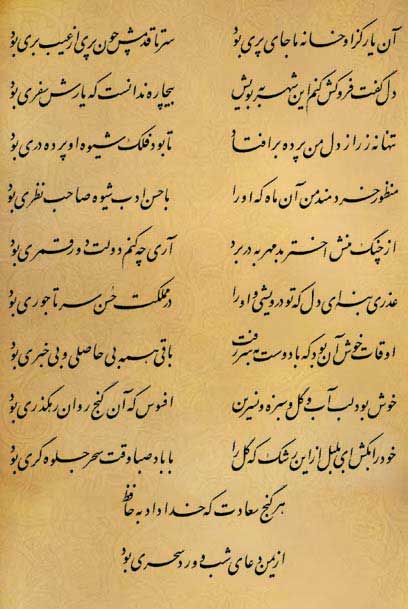 آن یار کز او خانه ما جای پری بود سر تا قدمش چون پری از عیب بری بود
دل گفت فروکش کنم این شهر به بویش بیچاره ندانست که یارش سفری بود
تنها نه ز راز دل من پرده برافتاد تا بود فلک شیوه او پرده دری بود
منظور خردمند من آن ماه که او را با حسن ادب شیوه صاحب نظری بود
از چنگ منش اختر بدمهر به در برد آری چه کنم دولت دور قمری بود
عذری بنه ای دل که تو درویشی و او را در مملکت حسن سر تاجوری بود
اوقات خوش آن بود که با دوست به سر رفت باقی همه بی حاصلی و بی خبری بود
خوش بود لب آب و گل و سبزه و نسرین افسوس که آن گنج روان رهگذری بود
خود را بکش ای بلبل از این رشک که گل را با باد صبا وقت سحر جلوه گری بود
هر گنج سعادت که خدا داد به حافظ
از یمن دعای شب و ورد سحری بود